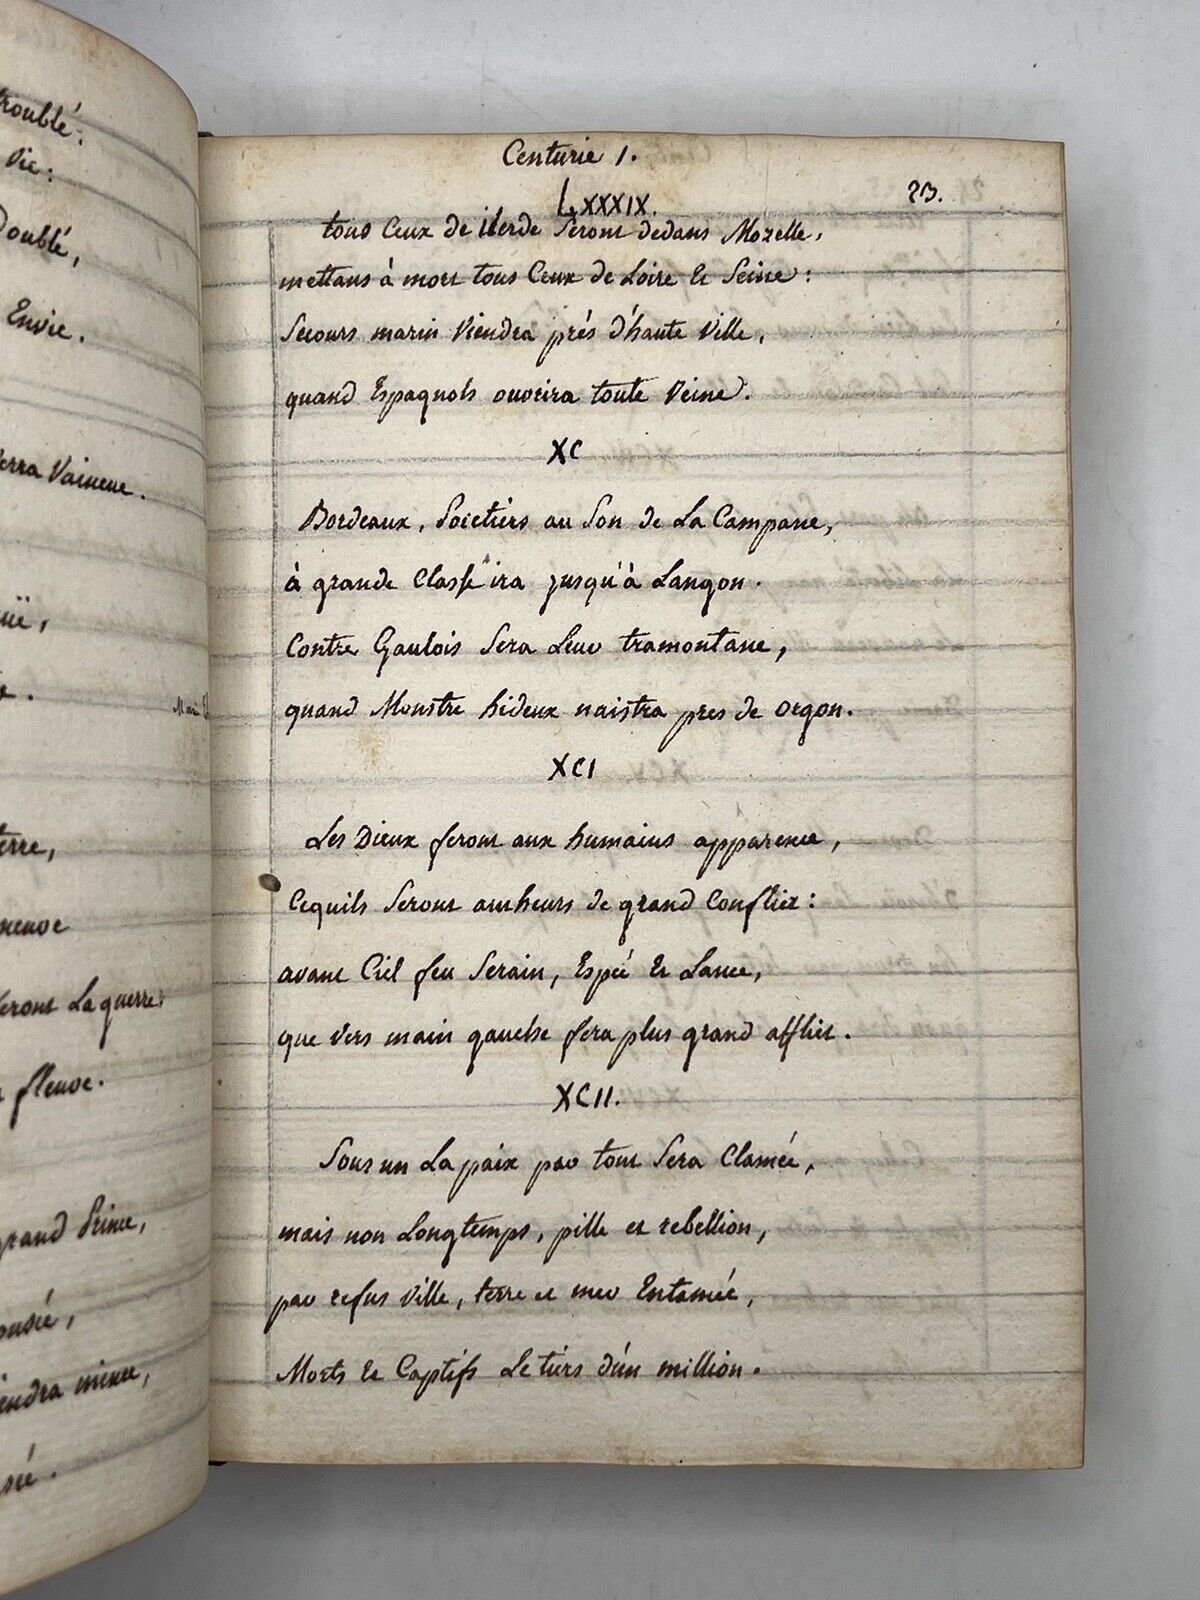 troublé:
Vie:
Doublé,
Envie.
Verra Vaincue.
terre,
feront La guerre
fleuve.
grand Prince,
viendra mince,
Centurie 1.
23.
LXXXIX.
tous Ceux de ilerde Seront dedans Mozelle,
mettans à mort tous Ceux de Loire & Seine:
Secours marin Viendra prés d'haute Ville,
quand Espagnols ouvrira toute Veine.
XC
Bordeaux, Poictiers au Son de La Campane,
à grande Classe ira jusqu'à Langon.
Contre Gaulois Sera Leur tramontane,
quand Monstre hideux naistra pres de Orgon.
XCI
Les Dieux feront aux humains apparence,
Cequils Seront autheurs de grand Conflict:
avant Ciel feu Serain, Espée & Lance,
que Vers main gauche fera plus grand afflict.
XCII.
Sous un La paix par tout Sera Clamée,
mais non Longtemps, pille et rebellion,
par refus Ville, terre et mer Entamée,
Morts & Captifs Le tiers d'un million.